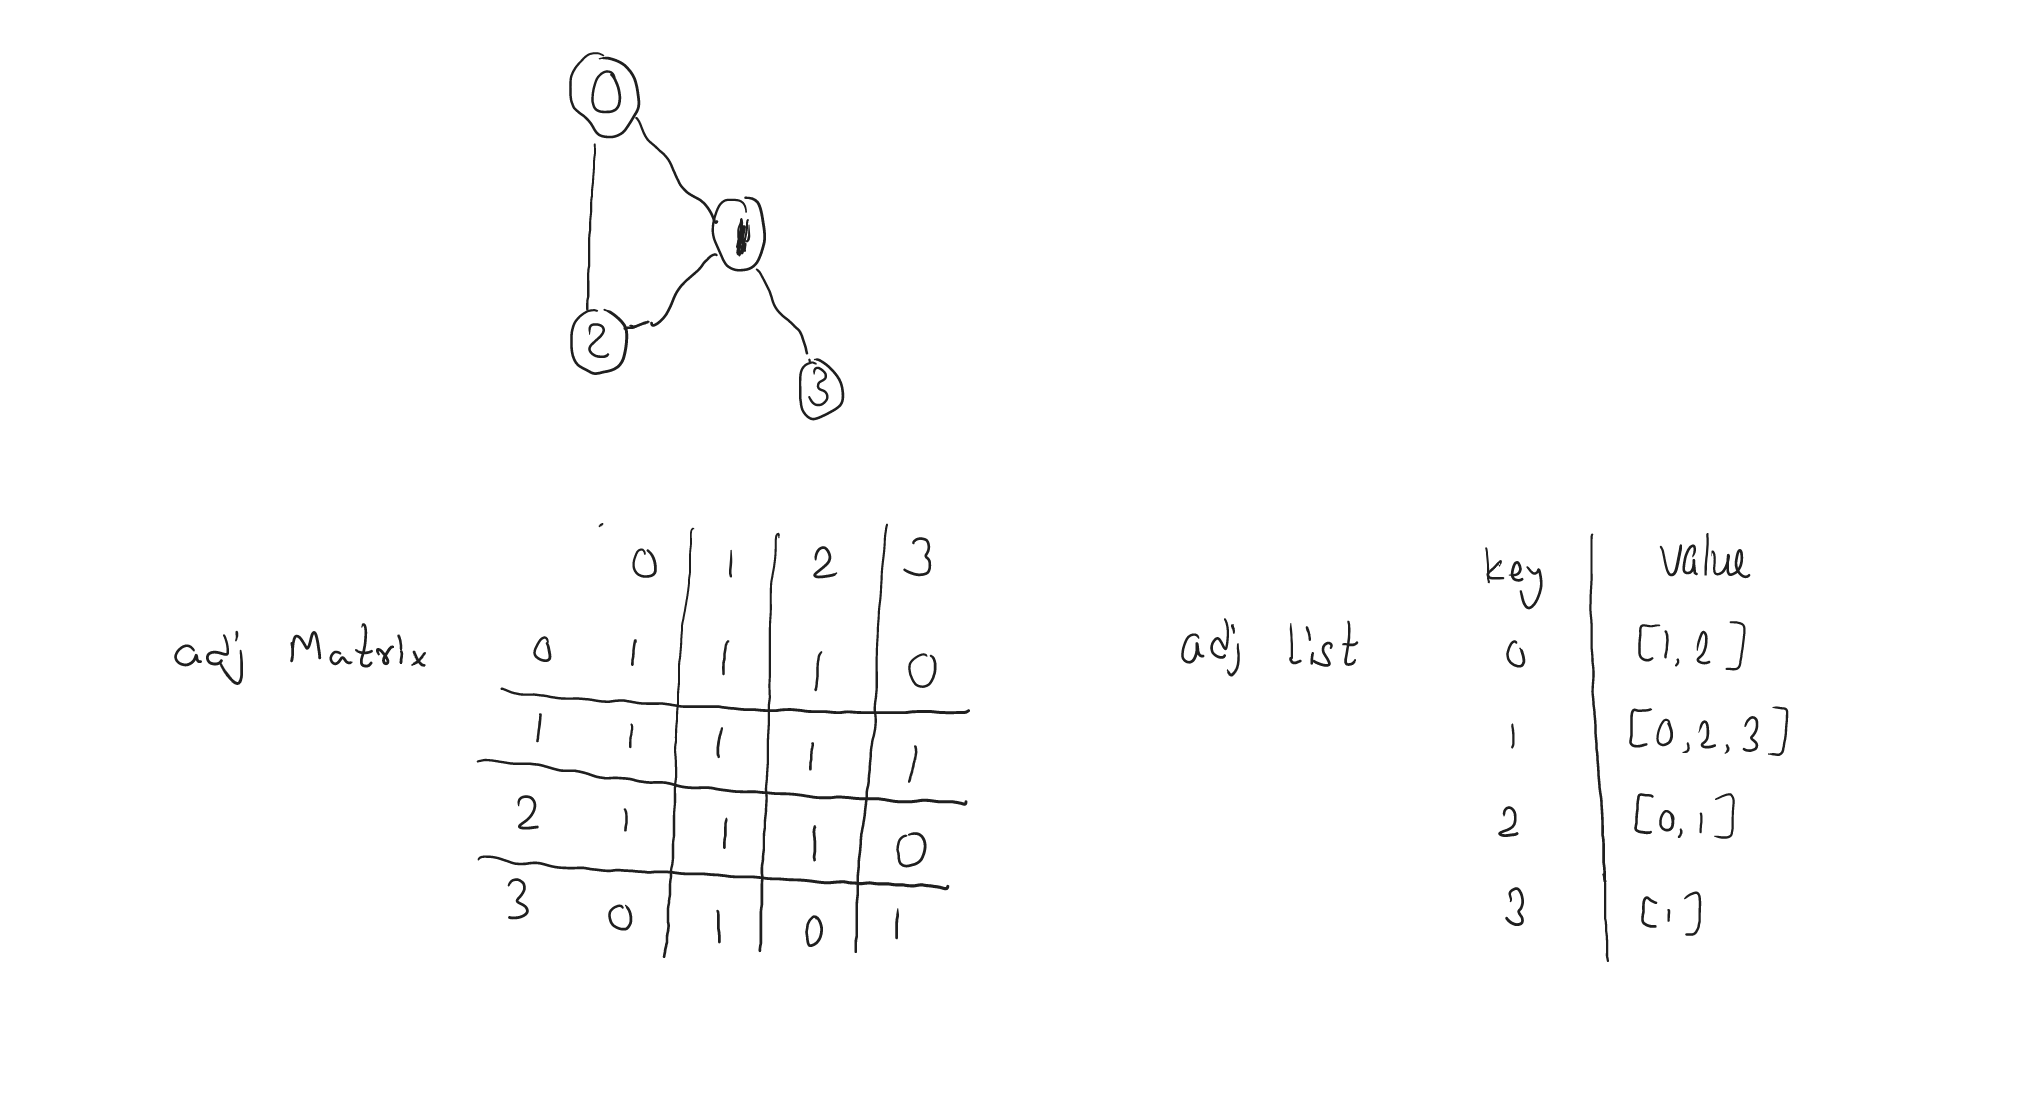 0
1
2
3
adj Matrix
0 1 2 3
0 1 1 1 0
1 1 1 1 1
2 1 1 1 0
3 0 1 0 1
adj list
key value
0 [1,2]
1 [0,2,3]
2 [0,1]
3 [1]